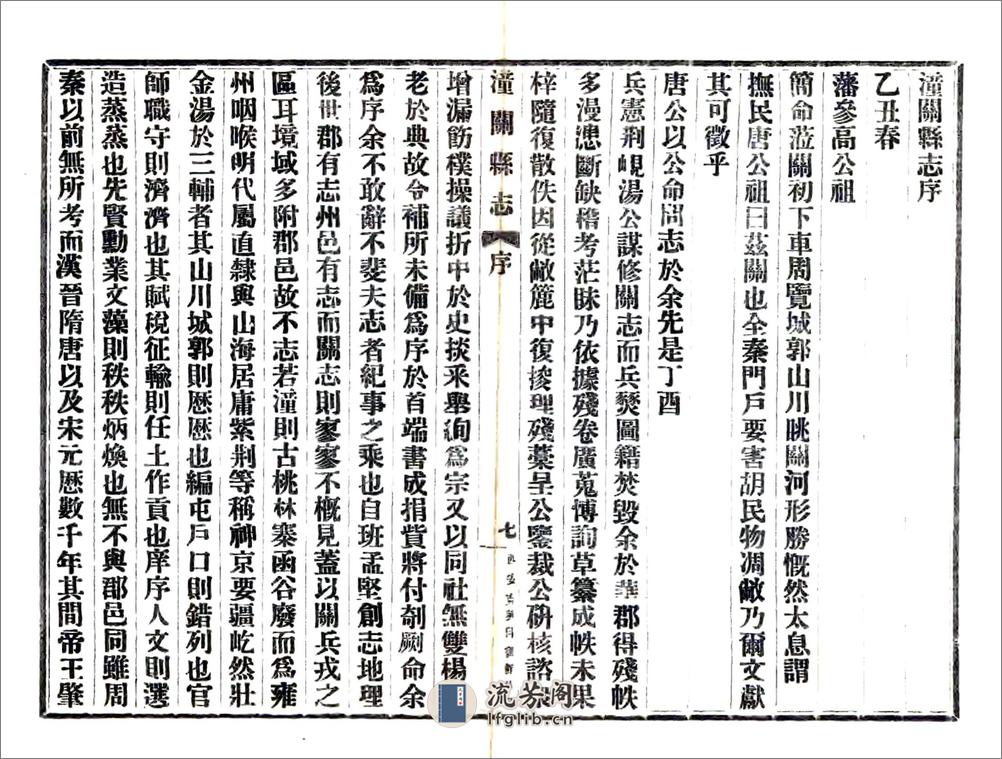 潼關縣志序
乙丑春
藩參高公祖
簡命蒞關初下車周覽城郭山川眺關河形勝慨然太息謂
撫民唐公祖曰茲關也全秦門戶要害胡民物凋敝乃爾文獻
其可徵乎
唐公以公命問志於余先是丁酉
兵憲荆峴湯公謀修關志而兵燹圖籍焚毀余於華郡得殘帙
多漫漶斷缺稽考茫昧乃依據殘卷廣蒐博詢草纂成帙未果
梓隨復散佚因從敝簏中復搜理殘藁呈公鑒裁公硏核諮
潼關縣志
序
七
增漏飭樸操議折中於史掞釆舉絢爲宗又以同社無雙楊
老於典故令補所未備爲序於首端書成捐貲將付剞劂命余
爲序余不敢辭不斐夫志者紀事之乘也自班孟堅創志地理
後世郡有志州邑有志而關志則寥寥不槪見蓋以關兵戎之
區耳境域多附郡邑故不志若潼則古桃林寨函谷廢而爲雍
州咽喉明代屬直隸與山海居庸紫荆等稱神京要疆屹然壯
金湯於三輔者其山川城郭則歷歷也編屯戶口則錯列也官
師職守則濟濟也其賦稅征輸則任土作貢也庠序人文則選
造蒸蒸也先賢勳業文藻則秩秩炳煥也無不與郡邑同雖周
秦以前無所考而漢晉隋唐以及宋元歷數千年其間帝王肇
流芳閣
lfglib.cn